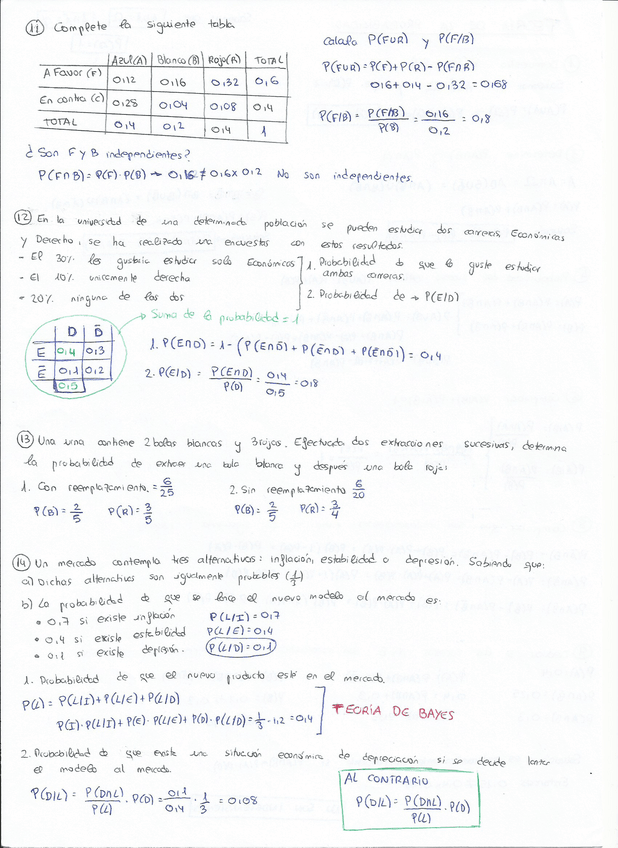 11 Complete la siguiente tabla
Azul(A) Blanco(B) Rojo(R) TOTAL
A Favor (F) 0,12 0,16 0,32 0,6
En contra (C) 0,28 0,04 0,08 0,4
TOTAL 0,4 0,2 0,4 1
calculo P(FUR) y P(F/B)
P(FUR)=P(F)+P(R)-P(F∩R)
0,6+0,4-0,32=0,68
P(F/B)= P(F/B)/P(B) = 0,16/0,2 = 0,8
¿Son F y B independientes?
P(F∩B)=P(F)·P(B) → 0,16≠0,6x0,2 No son independientes.
12 En la universidad de una determinada población se pueden estudiar dos carreras, Económicas
y Derecho, se ha realizado una encuestas con estos resultados.
- El 30% les gustaria estudiar solo Económicas
- El 10% unicamente derecha
- 20% ninguna de las dos
1. Probabilidad de que le guste estudiar
ambas carreras.
2. Probabilidad de → P(E/D)
→ Suma de la probabilidad=1
D D̄
E 0,4 0,3
Ē 0,1 0,2
0,5
1. P(E∩D)=1-(P(E∩D̄)+P(Ē∩D)+P(Ē∩D̄))=0,4
2. P(E/D) = P(E∩D)/P(D) = 0,4/0,5 = 0,8
13 Una urna contiene 2 bolas blancas y 3 rojas. Efectuada dos extracciones sucesivas, determina
la probabilidad de extraer una bola blanca y después una bola roja:
1. Con reemplazamiento.=6/25
P(B)=2/5 P(R)=3/5
2. Sin reemplazamiento 6/20
P(B)=2/5 P(R)=3/4
14 Un mercado contempla tres alternativas: inflación, estabilidad o depresión. Sabiendo que:
a) Dichas alternativas son igualmente probables (1/3)
b) La probabilidad de que se lance el nuevo modelo al mercado es:
• 0,7 si existe inflación P(L/I)=0,7
• 0,4 si existe estabilidad P(L/E)=0,4
• 0,1 si existe depresión. P(L/D)=0,1
1- Probabilidad de que el nuevo producto esté en el mercado.
P(L)= P(L/I)+P(L/E)+P(L/D)
P(I)·P(L/I)+P(E)·P(L/E)+P(D)·P(L/D)=1/3·1,2=0,4
TEORÍA DE BAYES
2. Probabilidad de que existe una situación económica de depreciación si se decide lanzar
el modelo al mercado.
P(D/L)= P(D∩L)/P(L)·P(D)=0,1/0,4·1/3=0,08
AL CONTRARIO
P(D/L)= P(D∩L)/P(L)·P(D)